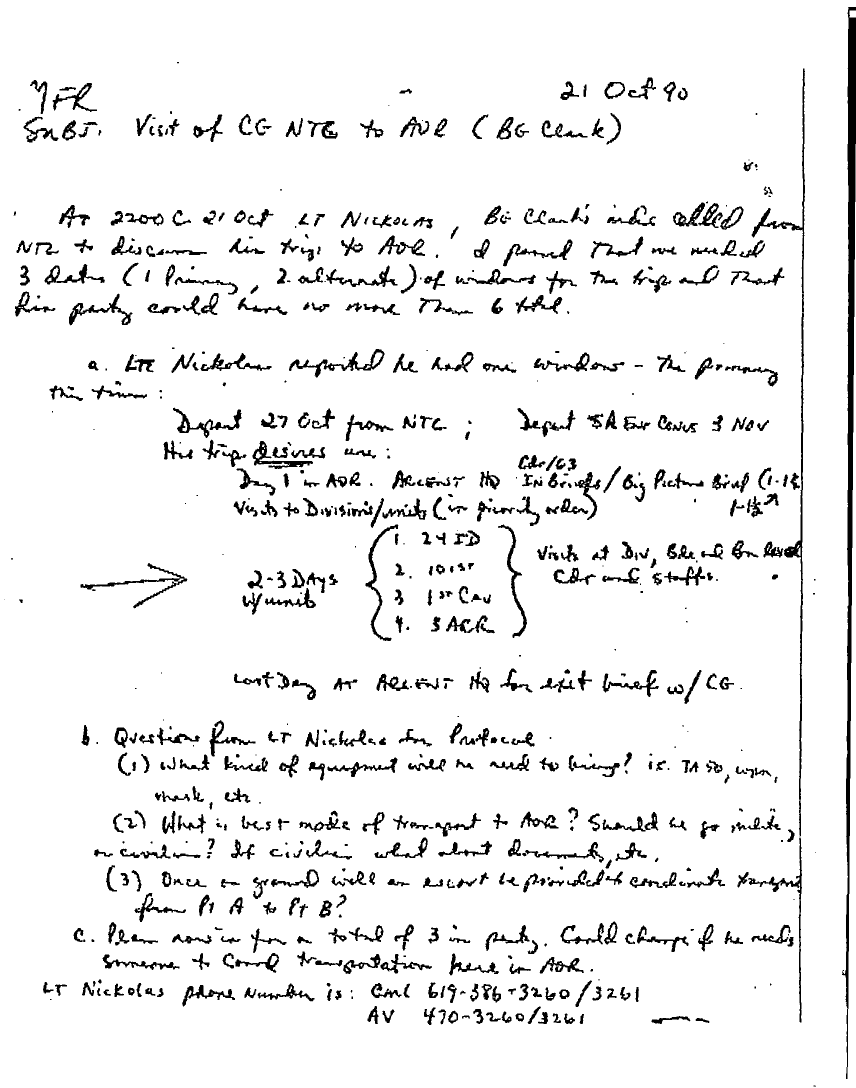 MFR 21 Oct 90
SUBJ. Visit of CG NTC to AOR (BG Clark)
At 2200C 21 Oct LT Nickolas, BG Clark's aide called from
NTC to discuss his trip to AOR. I passed that we needed
3 dates (1 Primary, 2 alternate) of windows for the trip and that
his party could have no more than 6 total.
a. LTC Nickolas reported he had one window - the primary
this time:
Depart 27 Oct from NTC; Depart SA Enr Conus 3 Nov
His trip desires are:
Cdr/G3
Day 1 in AOR. ARCENT HQ In Briefs/Big Picture Brief (1-1½
Visits to Divisions/units (in priority order) 1-1½
1. 24 ID
2. 101st
3 1st Cav
4. 3 ACR
2-3 Days
w/units
Visits at Div, Bde and Bn level
Cdr and staffs.
Last Day at ARCENT HQ for exit brief w/ CG.
b. Questions from LT Nickolas for Protocol
(1) What kind of equipment will he need to bring? ie. TA50, wpn,
mask, etc.
(2) What is best mode of transport to AOR? Should he go military
or civilian? If civilian what about documents, etc.
(3) Once on ground will an escort be provided to coordinate transport
from Pt A to Pt B?
c. Plan now is for a total of 3 in party. Could change if he needs
someone to coord transportation here in AOR.
LT Nickolas phone number is: Coml 619-386-3260/3261
AV 470-3260/3261